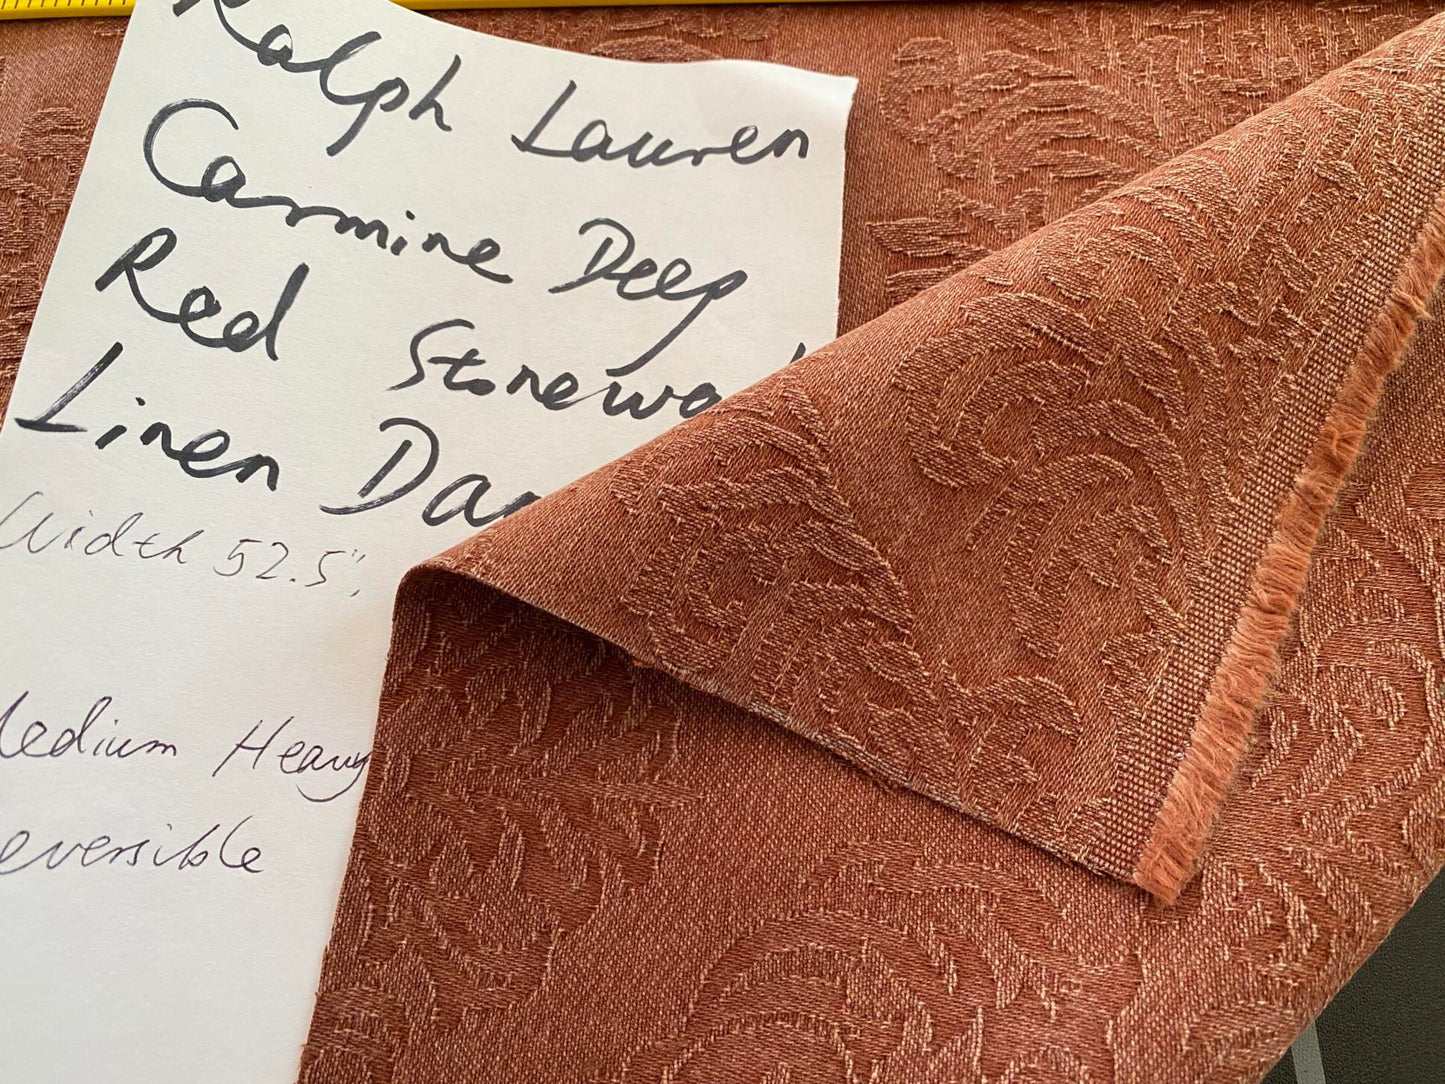 Ralph Lauren
Carmine Deep
Red Stonewa
Linen Da
Width 52.5",
Medium Heavy
eversible